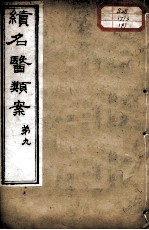 續名醫類案
第九